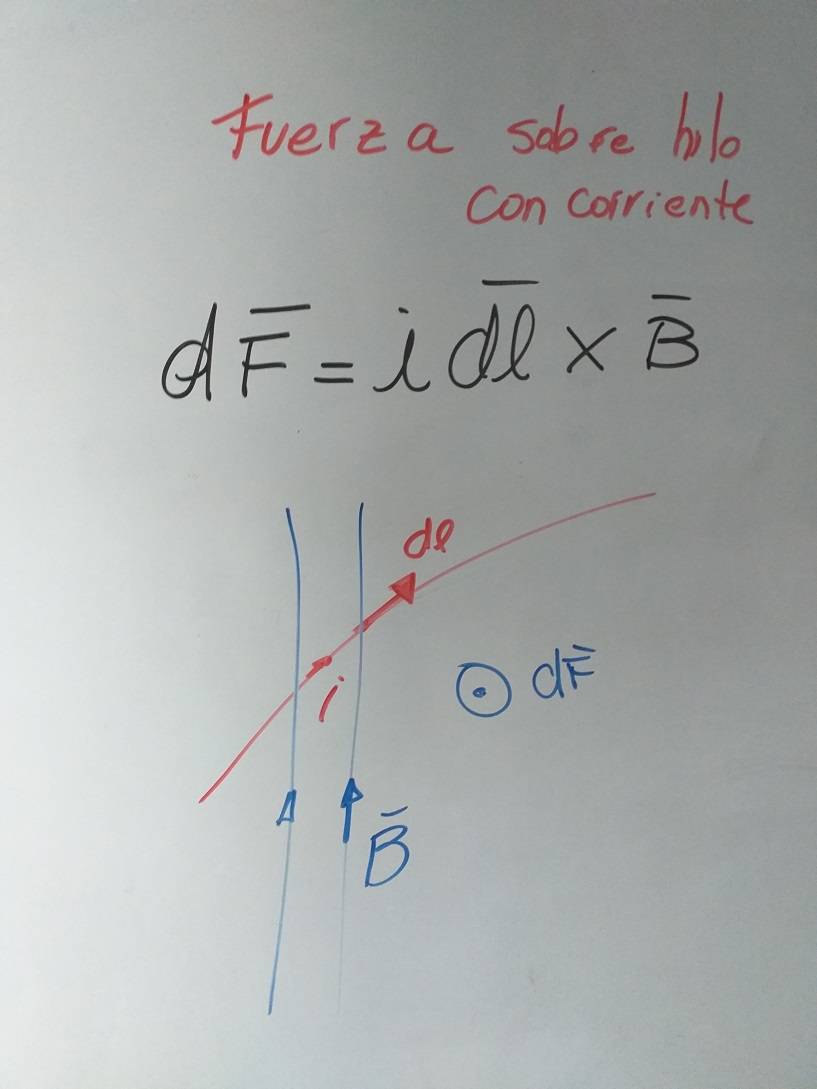 Fuerza sobre hilo
con corriente
dF̅ = i d̅l̅ × B̅
dl
i
dF̅
B̅